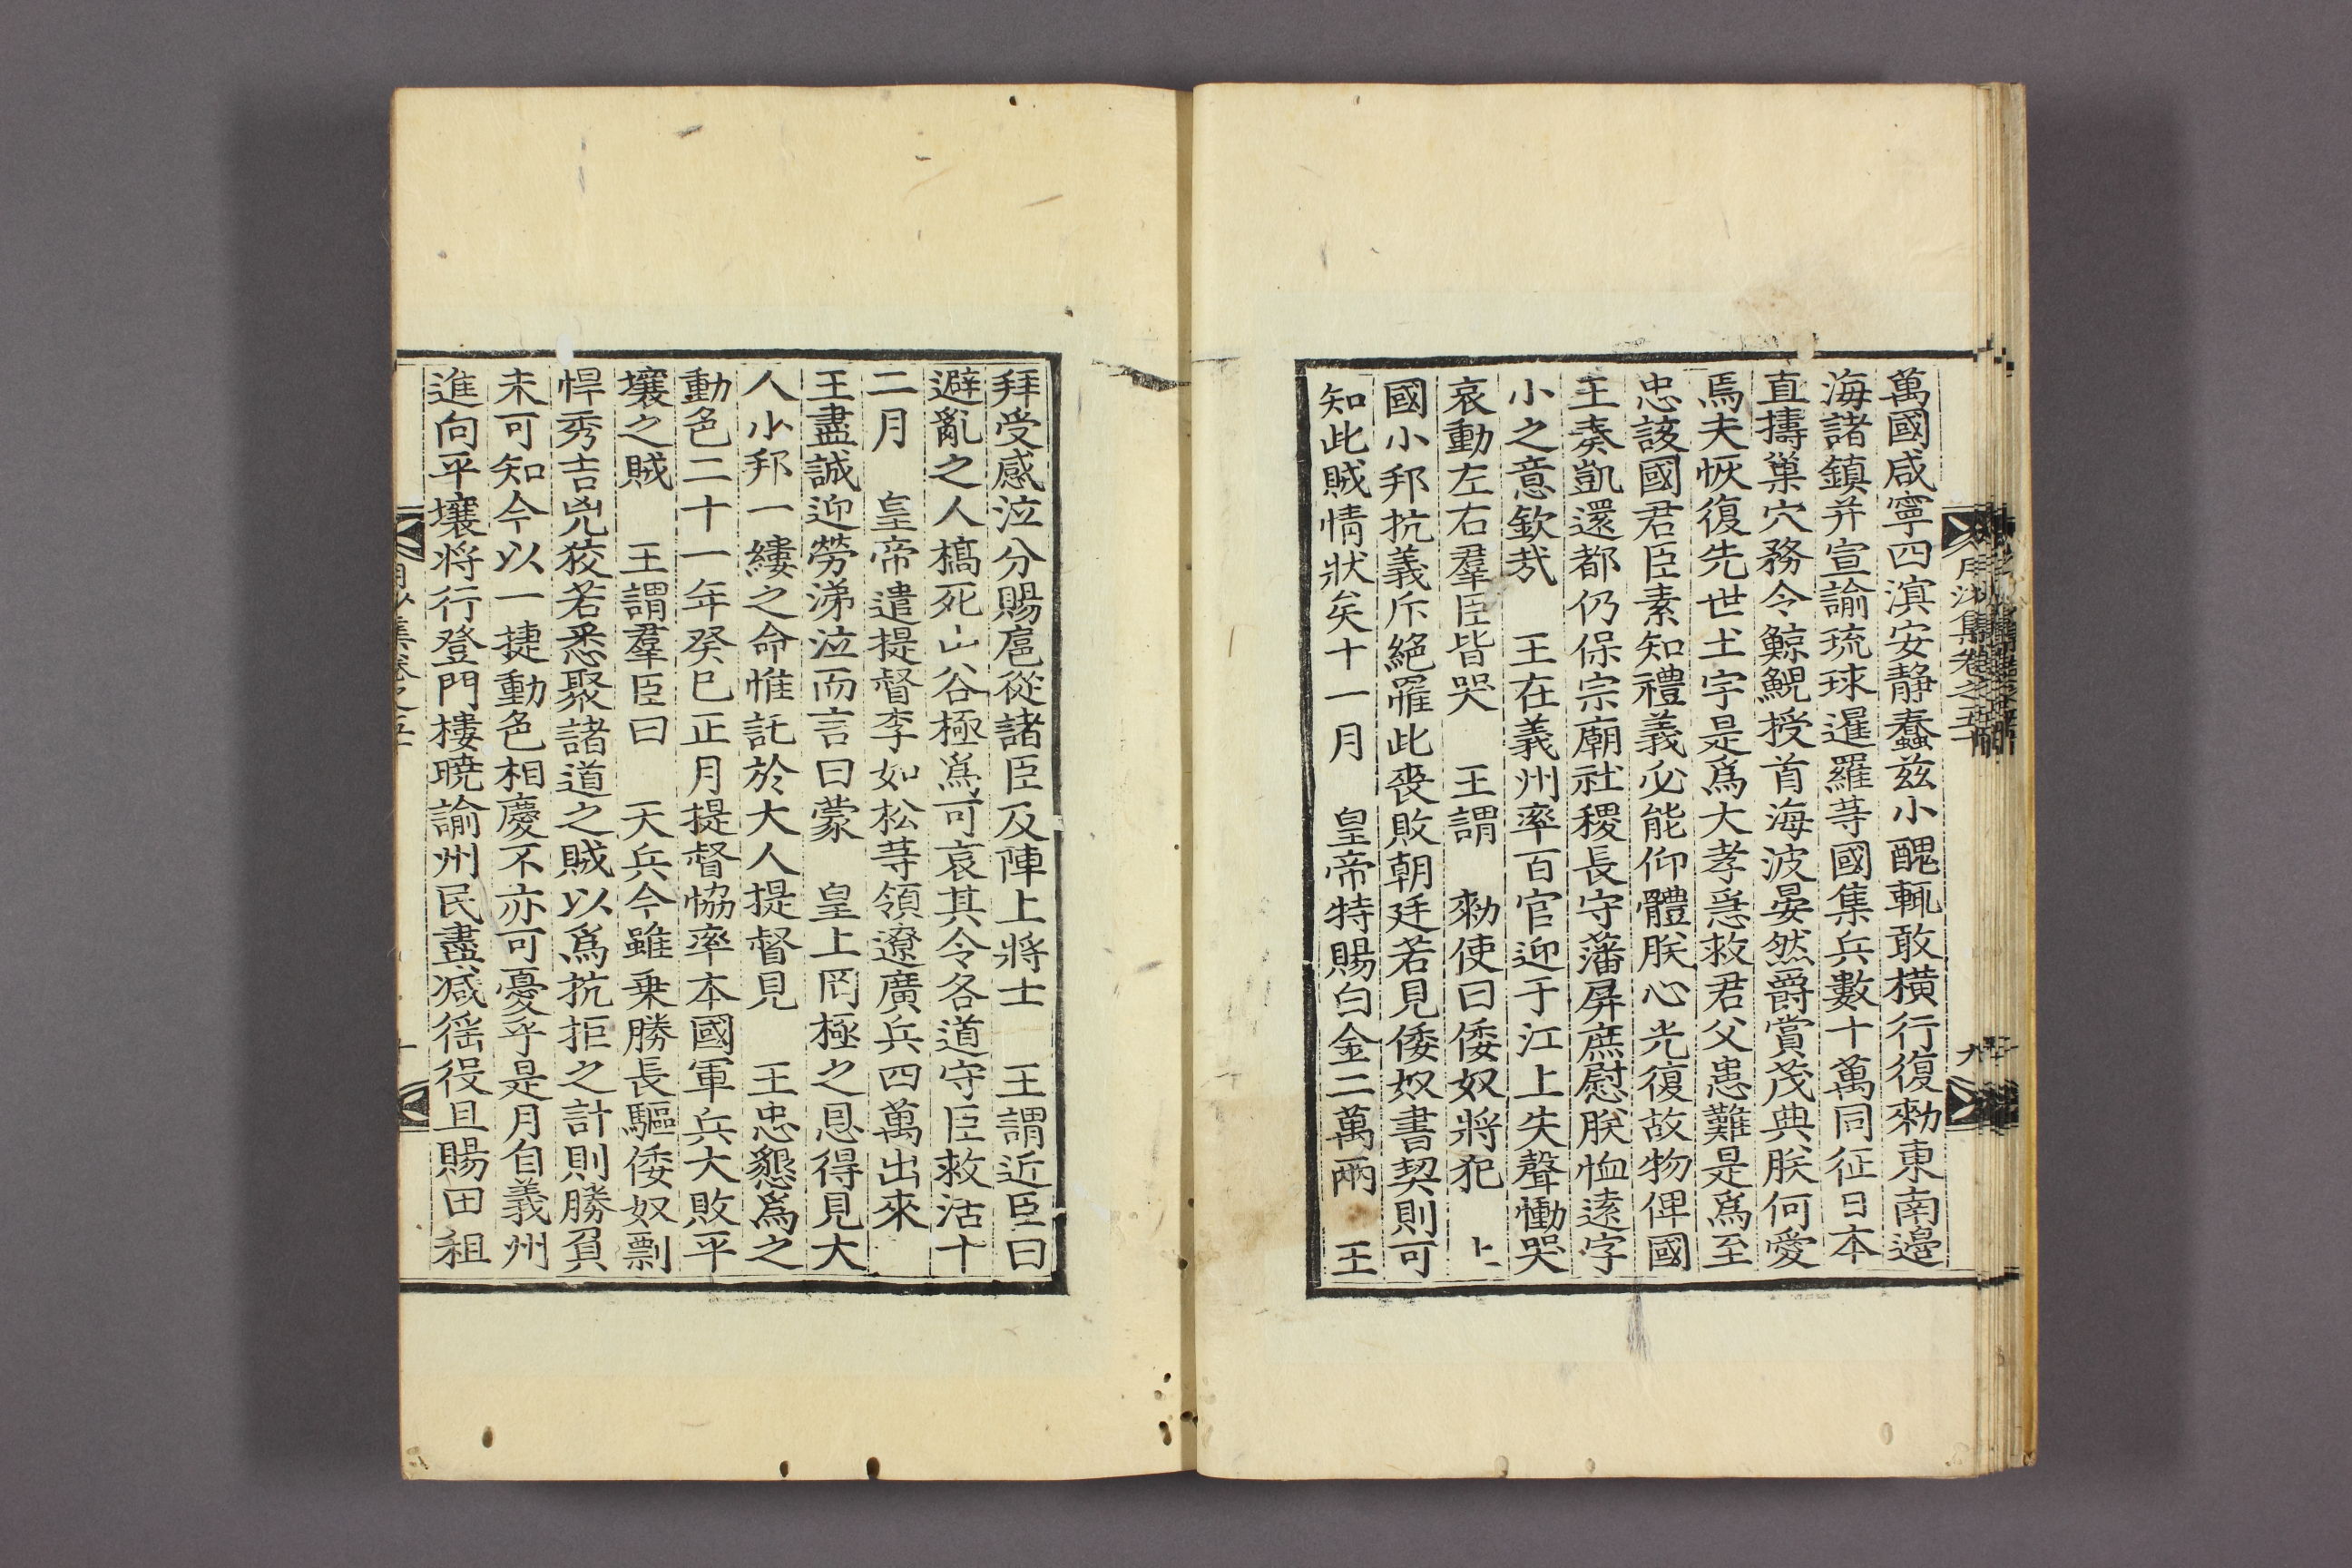 萬國咸寧四溟安靜蠢茲小醜輒敢橫行復勑東南邊
海諸鎮并宣諭琉球暹羅䓁國集兵數十萬同征日本
直擣巢穴務令鯨鯢授首海波晏然爵賞茂典朕何愛
焉夫恢復先世土宇是爲大孝急救君父患難是爲至
忠該國君臣素知禮義必能仰體朕心光復故物俾國
王奏凱還都仍保宗廟社稷長守藩屏庶慰朕恤遠字
小之意欽哉　王在義州率百官迎于江上失聲慟哭
哀動左右羣臣皆哭　王謂　勑使曰倭奴將犯　上
國小邦抗義斥絕罹此喪敗朝廷若見倭奴書契則可
知此賊情狀矣十一月　皇帝特賜白金二萬兩　王
月沙集卷之五十
九
拜受感泣分賜扈從諸臣及陣上將士　王謂近臣曰
避亂之人槁死山谷極爲可哀其令各道守臣救活十
二月　皇帝遣提督李如松䓁領遼廣兵四萬出來
王盡誠迎勞涕泣而言曰蒙　皇上罔極之恩得見大
人小邦一縷之命惟託於大人提督見　王忠懇爲之
動色二十一年癸巳正月提督恊率本國軍兵大敗平
壤之賊　王謂羣臣曰　天兵今雖乗勝長驅倭奴剽
悍秀吉兇狡若悉聚諸道之賊以爲抗拒之計則勝負
未可知今以一捷動色相慶不亦可憂乎是月自義州
進向平壤將行登門樓曉諭州民盡減徭役且賜田租